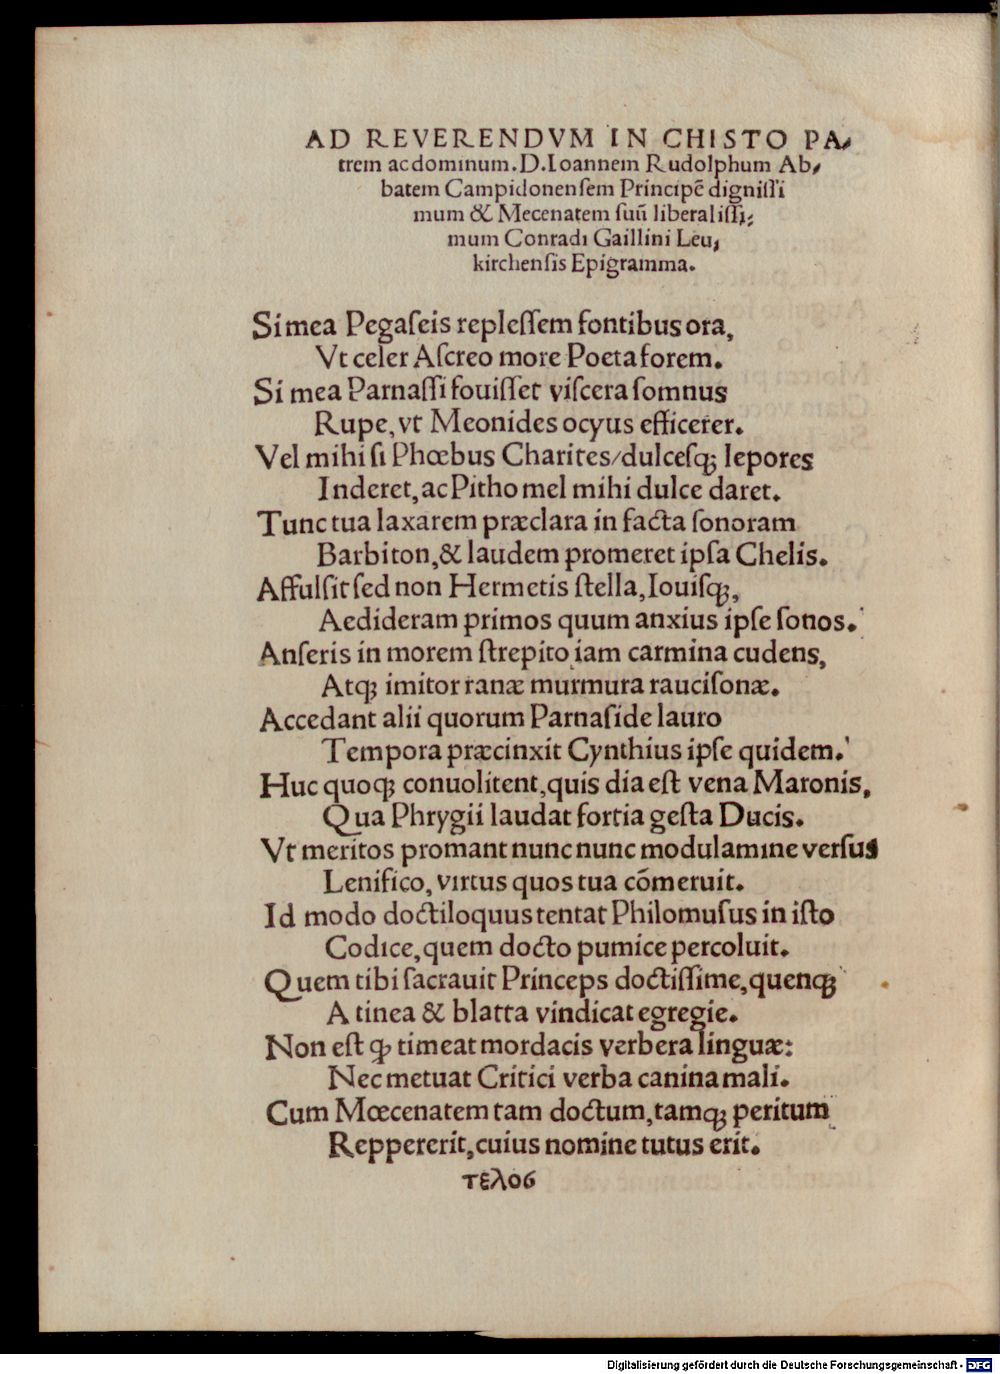 AD REVERENDVM IN CHISTO PA,
trem ac dominum.D.Ioannem Rudolphum Ab,
batem Campidonenſem Principẽ digniſſi
mum & Mecenatem ſuũ liberaliſſi,
mum Conradi Gaillini Leu,
kirchenſis Epigramma.
Si mea Pegaſeis repleſſem fontibus ora,
Vt celer Aſcreo more Poeta forem.
Si mea Parnaſſi fouiſſet viſcera ſomnus
Rupe, vt Meonides ocyus efficerer.
Vel mihi ſi Phœbus Charites/dulceſqꝫ lepores
Inderet, ac Pitho mel mihi dulce daret.
Tunc tua laxarem præclara in facta ſonoram
Barbiton, & laudem promeret ipſa Chelis.
Affulſit ſed non Hermetis ſtella, Iouiſqꝫ,
Aedideram primos quum anxius ipſe ſonos.
Anſeris in morem ſtrepito iam carmina cudens,
Atqꝫ imitor ranæ murmura rauciſonæ.
Accedant alii quorum Parnaſide lauro
Tempora præcinxit Cynthius ipſe quidem.
Huc quoqꝫ conuolitent, quis dia eſt vena Maronis,
Qua Phrygii laudat fortia geſta Ducis.
Vt meritos promant nunc nunc modulamine verſus
Lenifico, virtus quos tua cõmeruit.
Id modo doctiloquus tentat Philomuſus in iſto
Codice, quem docto pumice percoluit.
Quem tibi ſacrauit Princeps doctiſſime, quenqꝫ
A tinea & blatta vindicat egregie.
Non eſt ꝙ timeat mordacis verbera linguæ:
Nec metuat Critici verba canina mali.
Cum Mœcenatem tam doctum, tamqꝫ peritum
Reppererit, cuius nomine tutus erit.
τελος
Digitalisierung gefördert durch die Deutsche Forschungsgemeinschaft - DFG